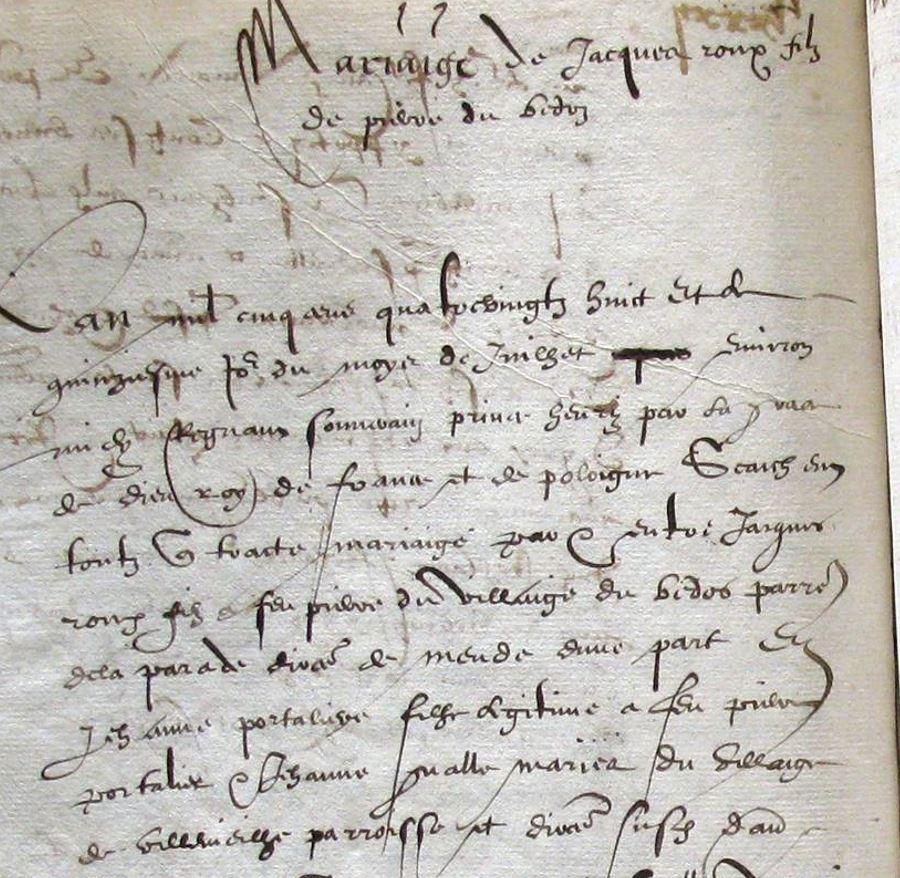 Mariaige de Jacques roux filz
de pierre du bedos
L'an mil cinq cens quatrevingtz huict et le
quinziesme Jor du moys de Juilhet environ
midy Regnant souverain prince henry par la grace
de dieu roy de france et de poloigne Scaichent
toutz que traicte mariaige par et entre Jacques
roux filz a feu pierre du villaige du bedos parre
de la parade dioce de mende dune part Et
Jehanne portaliere filhe legitime a feu pierre
portalier et Jehanne mariez du villaige
de villevieilhe parroisse et dioce susd d'au